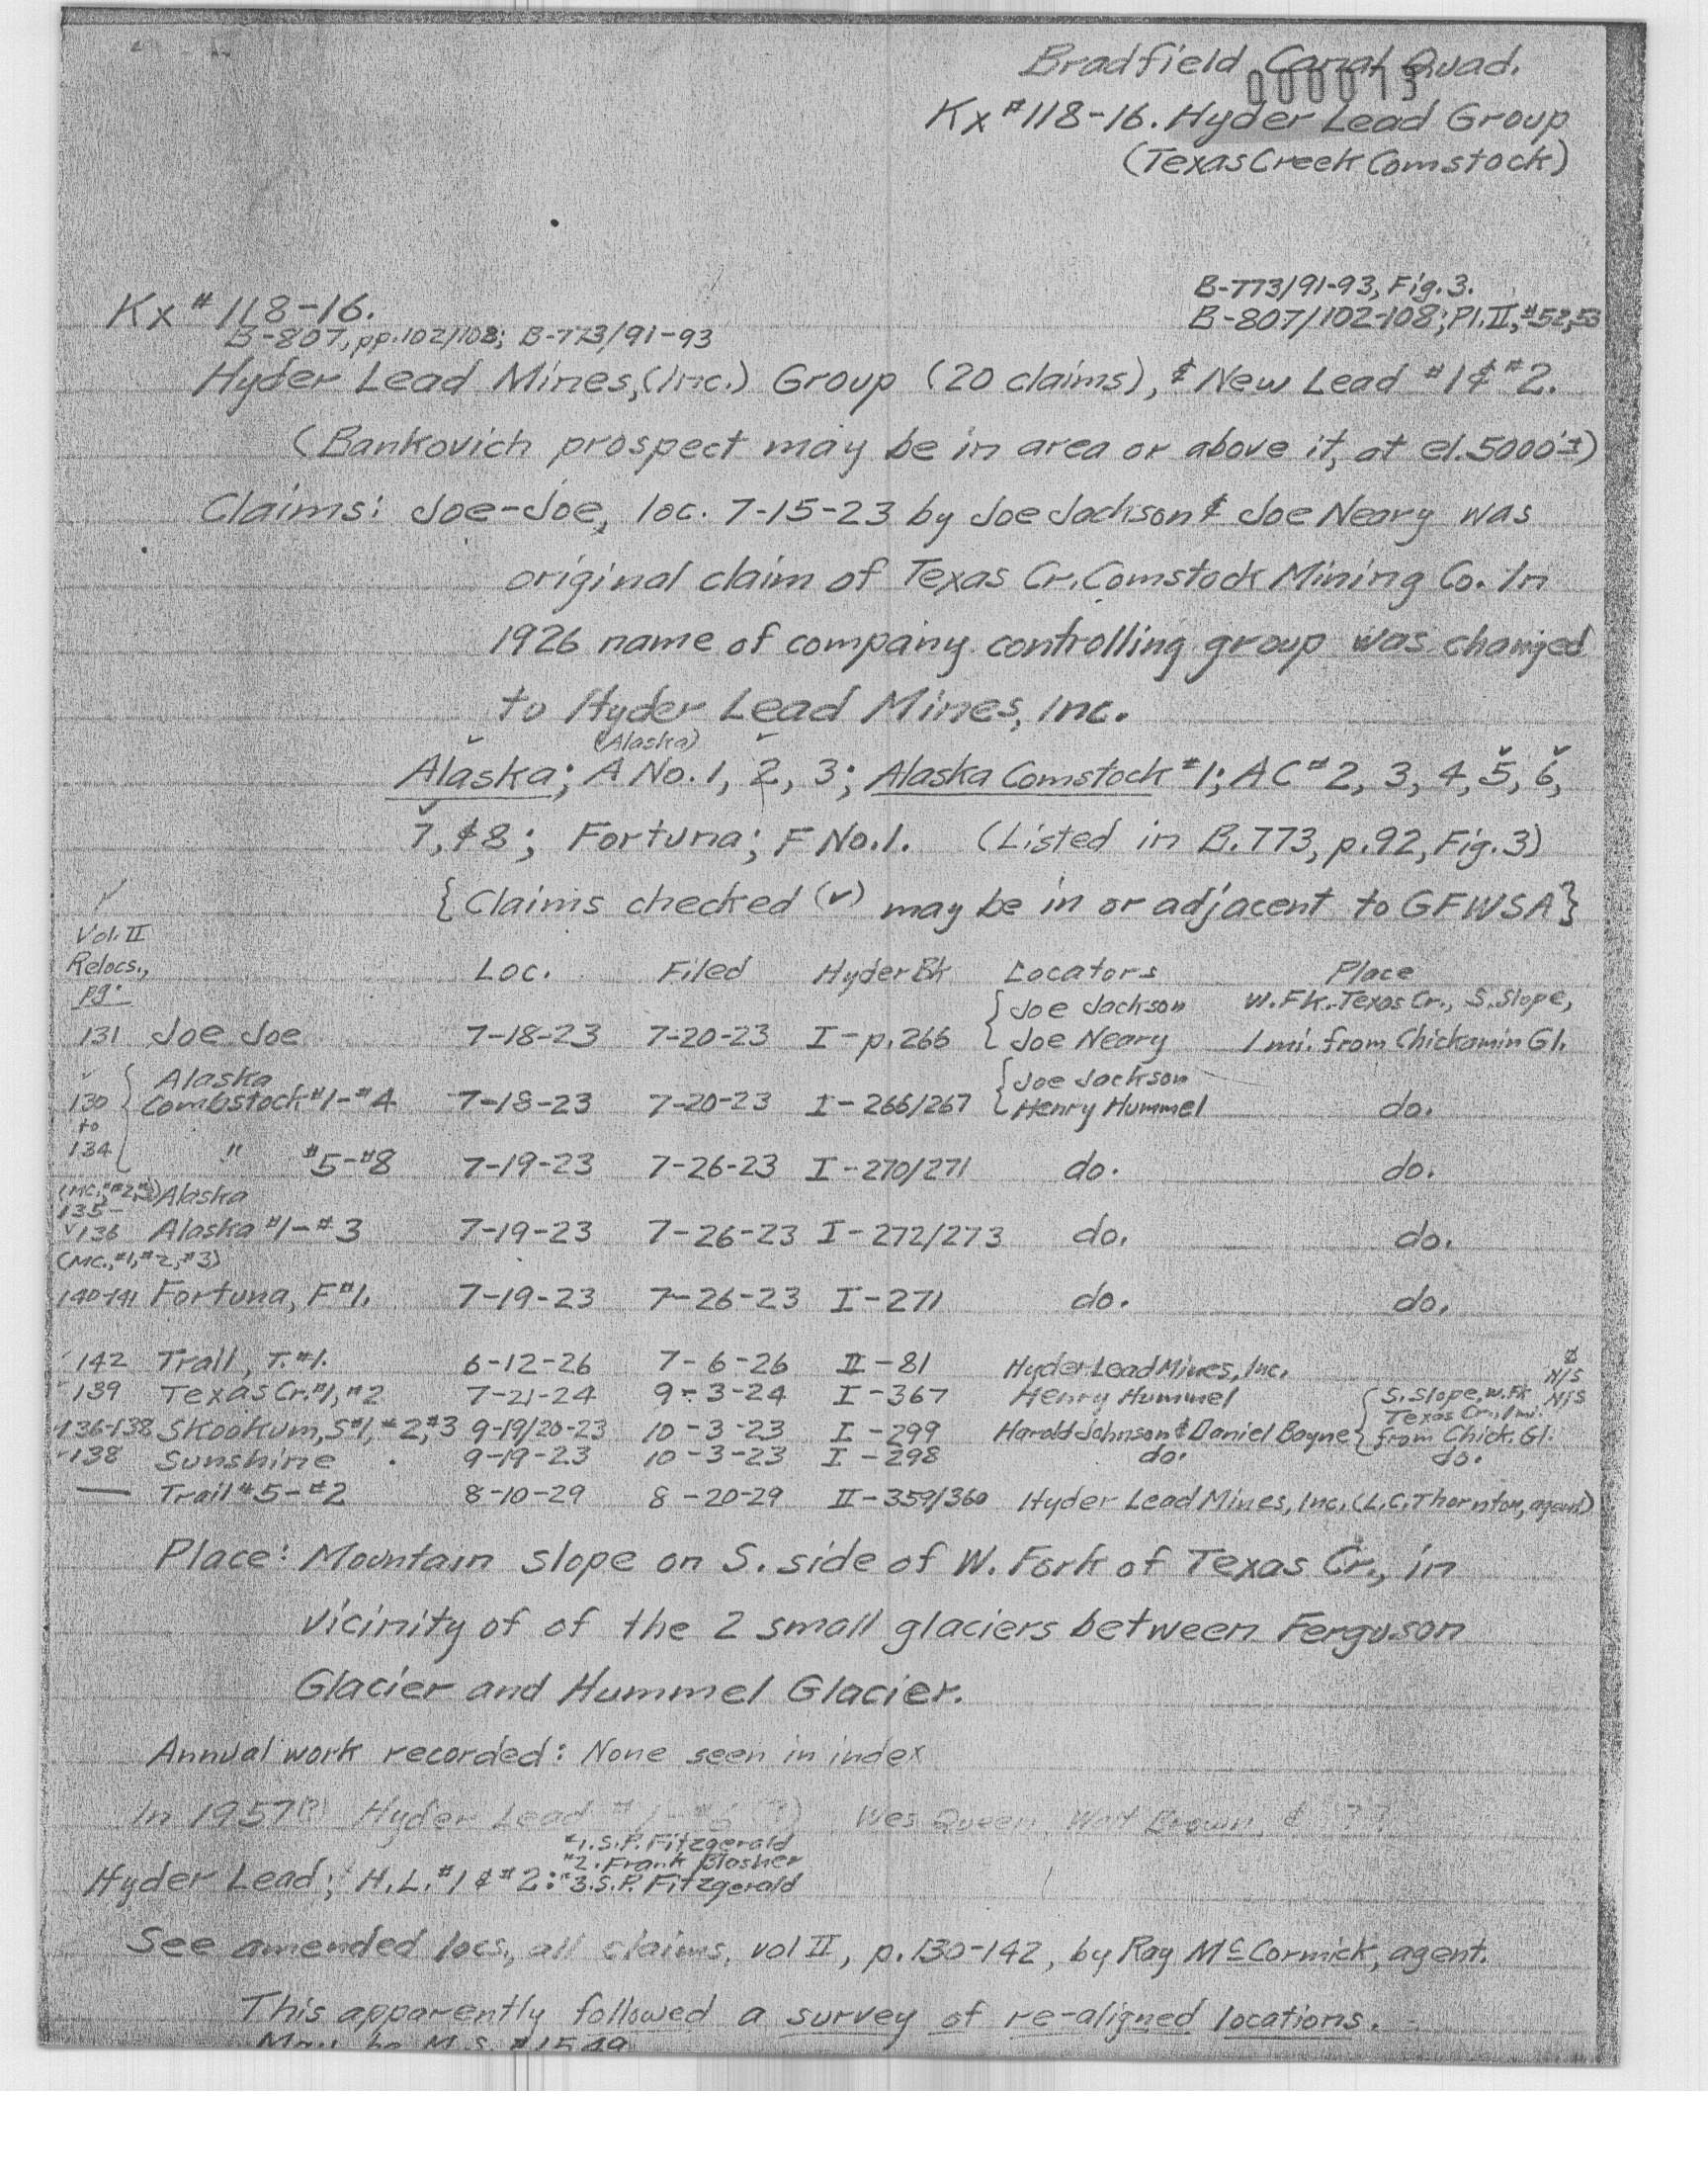 Bradfield Canal Quad.
000013
Kx #118-16. Hyder Lead Group
(Texas Creek Comstock)
B-773/91-93, Fig. 3.
B-807/102-108; Pl. II, #52,53
Kx # 118-16.
B-807, pp. 102/108; B-773/91-93
Hyder Lead Mines, (Inc.) Group (20 claims), & New Lead #1 & #2.
(Bankovich prospect may be in area or above it, at el. 5000'±)
Claims: Joe-Joe, loc. 7-15-23 by Joe Jackson & Joe Neary was
original claim of Texas Cr. Comstock Mining Co. In
1926 name of company controlling group was changed
to Hyder Lead Mines, Inc.
(Alaska)
Alaska; A No. 1, 2, 3; Alaska Comstock #1; AC #2, 3, 4, 5, 6,
7, & 8; Fortuna; F No. 1. (Listed in B. 773, p. 92, Fig. 3)
{Claims checked (✓) may be in or adjacent to GFWSA}
Vol. II
Relocs., Loc. Filed Hyder Bk Locators Place
pg. {Joe Jackson W. Fk. Texas Cr., S. Slope,
131 Joe Joe 7-18-23 7-20-23 I-p. 266 Joe Neary 1 mi. from Chickamin Gl.
Alaska {Joe Jackson
130 Combstock #1-#4 7-18-23 7-20-23 I-266/267 Henry Hummel do.
to
134 " #5-#8 7-19-23 7-26-23 I-270/271 do. do.
Alaska
135-
✓136 Alaska #1-#3 7-19-23 7-26-23 I-272/273 do. do.
(MC., #1, #2, #3)
140-141 Fortuna, F #1. 7-19-23 7-26-23 I-271 do. do.
142 Trail, T. #1. 6-12-26 7-6-26 II-81 Hyder Lead Mines, Inc. N/S
139 Texas Cr. #1, #2 7-21-24 9-3-24 I-367 Henry Hummel {S. Slope, W. Fk N/S
Texas Cr., 1 mi.
136-138 Skookum, S #1, #2, #3 9-19/20-23 10-3-23 I-299 Harold Johnson & Daniel Boyne} from Chick. Gl.
138 Sunshine 9-19-23 10-3-23 I-298 do. do.
— Trail #5-#2 8-10-29 8-20-29 II-359/360 Hyder Lead Mines, Inc. (L.C. Thornton, agent)
Place: Mountain slope on S. side of W. Fork of Texas Cr., in
vicinity of of the 2 small glaciers between Ferguson
Glacier and Hummel Glacier.
Annual work recorded: None seen in index
In 1957(?) Hyder Lead #1-#6 (?) Wes Queen, Walt Brown, & ??
#1. S.P. Fitzgerald
#2. Frank Blasher
Hyder Lead; H.L. #1 & #2: #3. S.P. Fitzgerald
See amended locs, all claims, vol II, p. 130-142, by Ray McCormick, agent.
This apparently followed a survey of re-aligned locations.
May be M.S. #1549